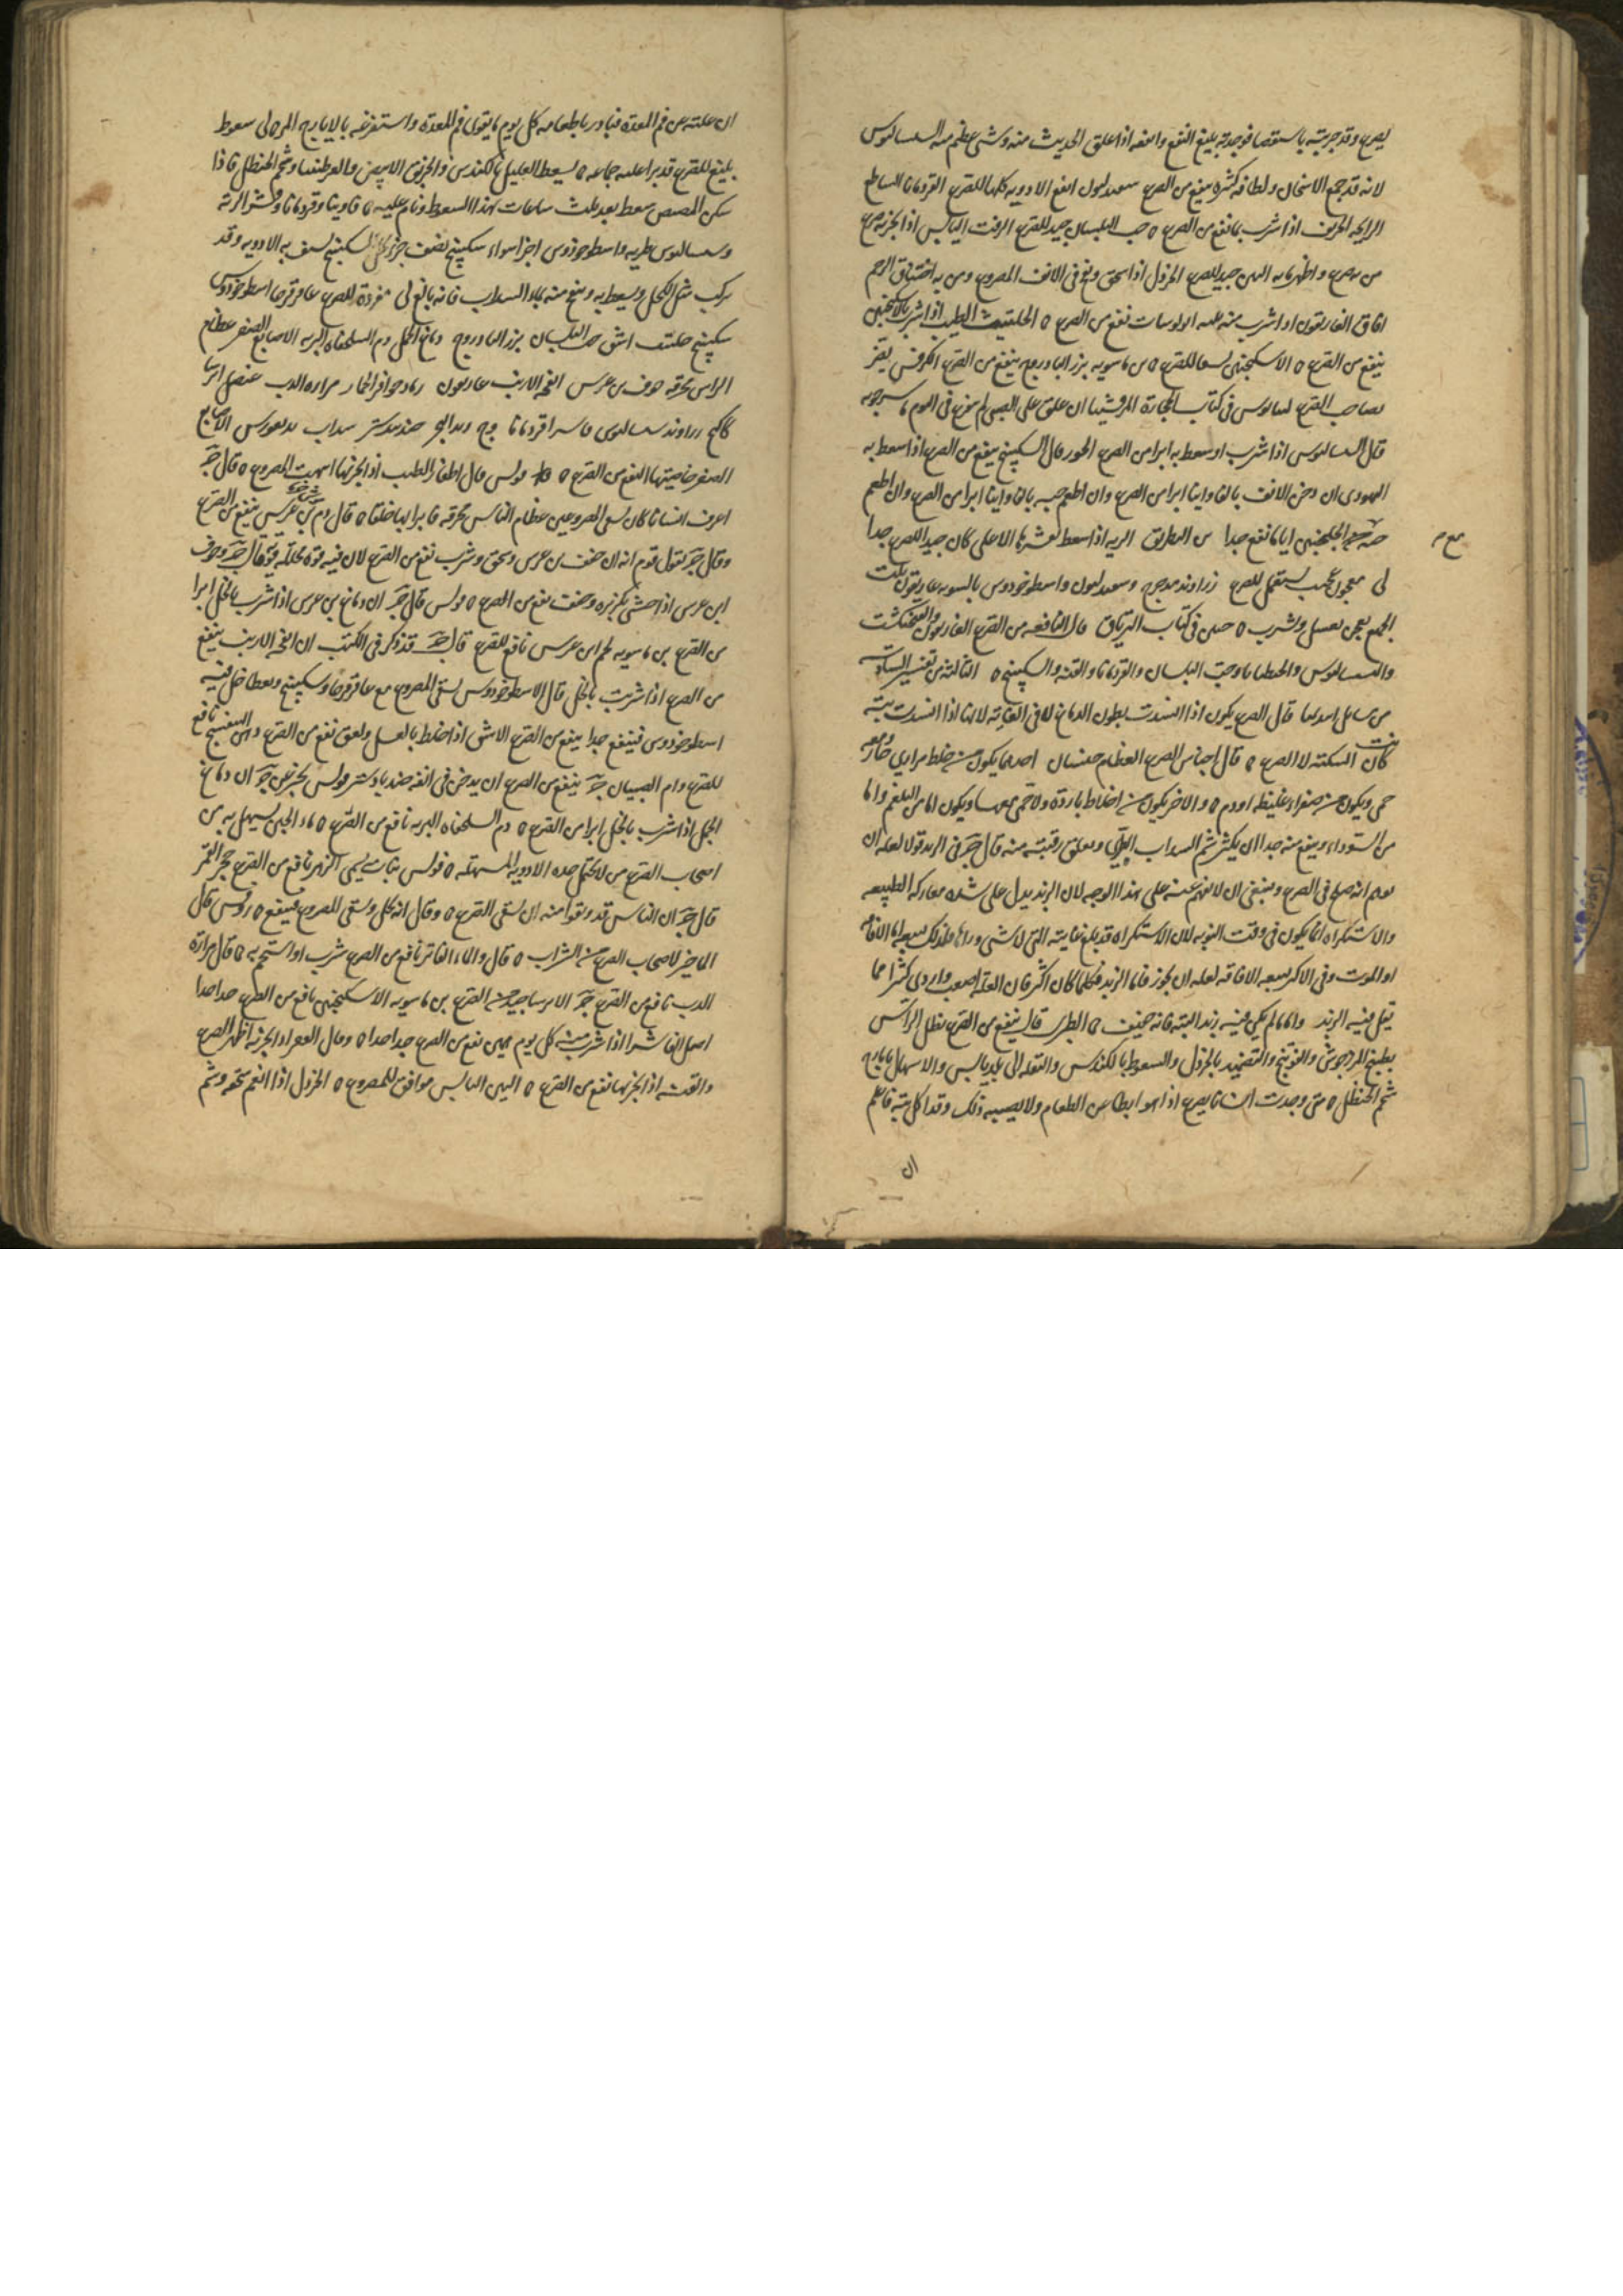 يصرع وقد جربته باستقصا فوجدته بليغ النفع وانفعه اذا علق الحديث منه وشى عظم منه السساليوس
لانه قد جمع الاسخان ولطافه كثيره ينفع من الصرع انفع الادويه كلها للصرع القردمانا الساطع
الرايحه الحريف اذا شرب بما نفع من الصرع ه حب البلسان جيد للصرع الزفت اليابس اذا بخر به صرع
من يصرع واظهر ما به جيد للصرع الخردل اذا سحق ونفخ فى الانف المصروع ومن به اختناق الرحم
افاق الغاريقون اذا شرب منه نفع من الصرع ه الحلتيت الطيب اذا شرب بالسكنجبين
ينفع من الصرع ه الاسكنجبين للصرع ه بن ماسويه بزر الباذروج ينفع من الصرع الكرفس يضر
بصاحب الصرع فى كتاب الحجارة ان علق على الصبى لم يفزع فى النوم ماسرجويه
قال السساليوس اذا شرب او سعط به ابرا من الصرع الخوز قال السكبينج ينفع من الصرع اذا سعط به
اليهودى ان دخن الانف بالفاوانيا ابرا من الصرع وان اطعم حبه بالفاوانيا ابرا من الصرع وان اطعم
الجلنجبين اياما نفع جدا بن البطريق الريه اذا سعط الاعلى كان جيدا للصرع جدا
لى معجون عجيب يستعمل للصرع زراوند مدحرج واسطوخودوس بالسويه غاريقون ثلث
الجميع يعجن بعسل ويشرب ه حنين فى كتاب الترياق قال النافعه من الصرع الغاريقون والفنجنكشت
والسساليوس والجنطيانا وحب البلسان والقردمانا والقنه والسكبينج ه الثالثه من تفسير السادسه
من قال الصرع يكون اذا انسدت بطون الدماغ لا فى الغايه لانها اذا انسدت بته
كانت السكته لا الصرع ه قال اجناس الصرع العظام جنسان احدهما يكون من خلط مرارى حار ومعه
حمى ويكون من صفراء غليظه او دم ه والاخر يكون من اخلاط بارده ولا حمى معها ويكون اما من البلغم واما
من السوداء وينفع منه جدا ان يكثر شم السداب البرى ويعلق رقبته منه قال ج فى الزبد قولا لعله ان
يوهم انه صلح فى الصرع وينبغى ان لا يفهم عنه على هذا الوجه لان الزبد يدل على شده معاركه الطبيعه
والاستكراه انما يكون فى وقت النوبه لان الاستكراه قد بلغ غايته التى لا شى وراها فلذلك اما الافاقه
او الموت وفى الاكثر الافاقه لعله ان يجوز فاما الزبد فكلما كان اكثر فان العله اصعب واردى كثيرا مما
يقل فيه الزبد واما ما لم يكن فيه زبد البته فانه خفيف ه الطبرى قال ينفع من الصرع نطل الراس
بطبيخ المرزجوش والفوتنج والتضميد بالخردل والسعوط بالكندس والنقله الى بلد يابس والاسهال بايارج
شحم الحنظل ه متى وجدت انسانا يصرع اذا هو ابطا عن الطعام ولا يصيبه ذلك وقد اكل بته فاعلم
ان
ان علته عن فم المعده فبادر باطعامه كل يوم ما يقوى فم المعده واستفرغه بالايارج المر ه لى سعوط
بليغ للصرع قد برا عليه جماعه ه يسعط العليل بالكندس والخربق الابيض والعرطنيثا وشحم الحنظل فاذا
سكن المصص سعط بعد ثلث ساعات بهذا السعوط ونام عليه ه فاوينا وقردمانا
وسساليوس طريه واسطوخودوس اجزا سواء سكبينج نصف جزء السكبينج يسف به الادويه وقد
يركب مثل الكحل ويسعط به وينفخ منه بماء السداب فانه بالغ لى مفردة للصرع عاقرقرحا اسطوخودوس
سكبينج حلتيت اشق حب البلسان بزر الباذروج دماغ الجمل دم السلحفاه البريه الاصابع الصفر عظام
الراس محرقه جوف بن عرس انفحه الارنب غاريقون رماد حوافر الحمار مراره الدب عنصل ايرسا
زراوند سساليوس فاشرا قردمانا وج زبد البحر جندبيدستر سداب الاصابع
الصفر خاصيتها النفع من الصرع ه بولس قال اظفار الطيب اذا بخر بها انبهت المصروع ه قال ج
اعرف انسانا كان يسقى المصروعين عظام الناس محرقه فابرا بها خلقا ه قال دم بن عرس ينفع من الصرع
وقال ج يقول قوم انه ان جفف بن عرس وسحق وشرب نفع من الصرع لان فيه قوة محلله قويه قال ج وجوف
ابن عرس اذا حشى بكزبره وجفف نفع من الصرع ه بولس قال ج ان دماغ بن عرس اذا شرب بالخل ابرا
من الصرع بن ماسويه لحم ابن عرس نافع للصرع قال ج قد ذكر فى الكتب ان انفحه الارنب ينفع
من الصرع اذا شربت بالخل قال الاسطوخودوس يسقى المصروع مع عاقرقرحا وسكبينج ويعطا خل فيه
اسطوخودوس فينتفع جدا ينفع من الصرع الاشق اذا خلط بالعسل ولعق نفع من الصرع دهن البنفسج نافع
للصرع وام الصبيان ج ينفع من الصرع ان يدخن فى انفه جندبادستر بولس ج ان دماغ
الجمل اذا شرب بالخل ابرا من الصرع ه دم السلحفاه البريه نافع من الصرع ه ماء الجبن يسهل به من
اصحاب الصرع من لا يحتمل حده الادويه المسهله ه فولس نبات يسمى الزهر نافع من الصرع حجر القمر
قال ج ان الناس قد وثقوا منه ان يشفى الصرع ه وقال انه يحل ويسقى للصروع فينفع ه روفس قال
لاصحاب الصرع من الشراب ه قال والماء الفاتر نافع من الصرع شرب او استحم به ه قال مرارة
الدب نافع من الصرع ج الايرسا جيد من الصرع بن ماسويه الاسكنجبين نافع من الصرع جدا جدا
اصل الفاشرا اذا شرب منه كل يوم نفع من الصرع جدا جدا ه وقال القفر اذا بخر به اظهر الصرع
والقنه اذا بخر بها نفع من الصرع ه التين اليابس موافق للمصروع ه الخردل اذا انعم سحقه وشم